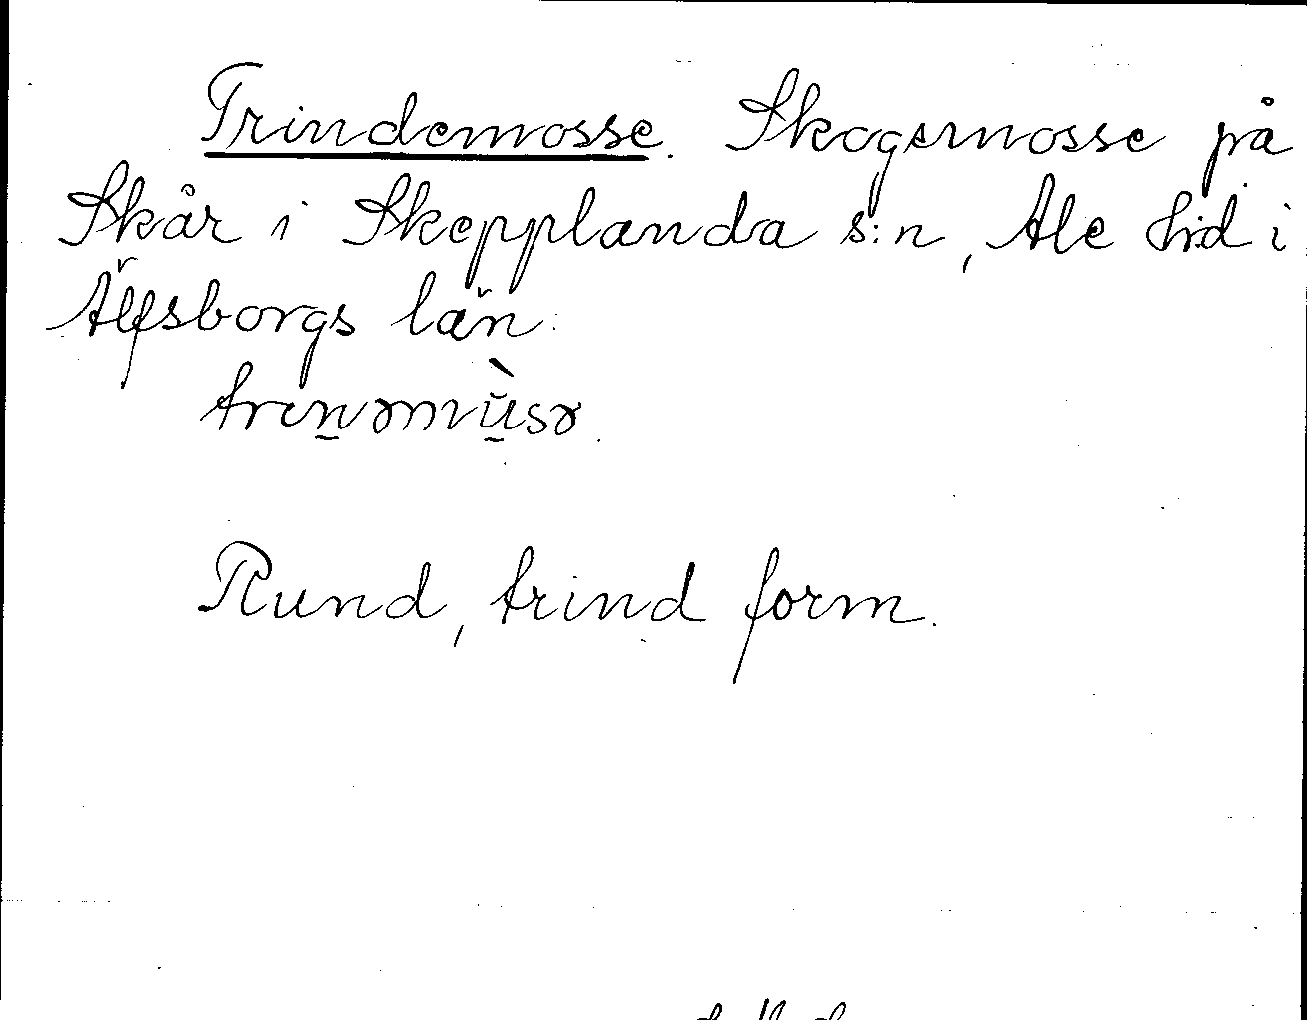 Trindemosse. Skogsmosse på
Skår i Skepplanda s:n, Ale hd i
Älfsborgs län.
Rund, trind form.